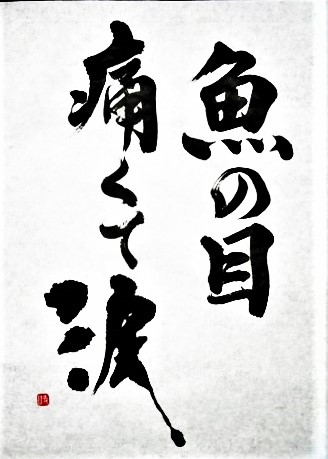 魚の目
痛くて涙